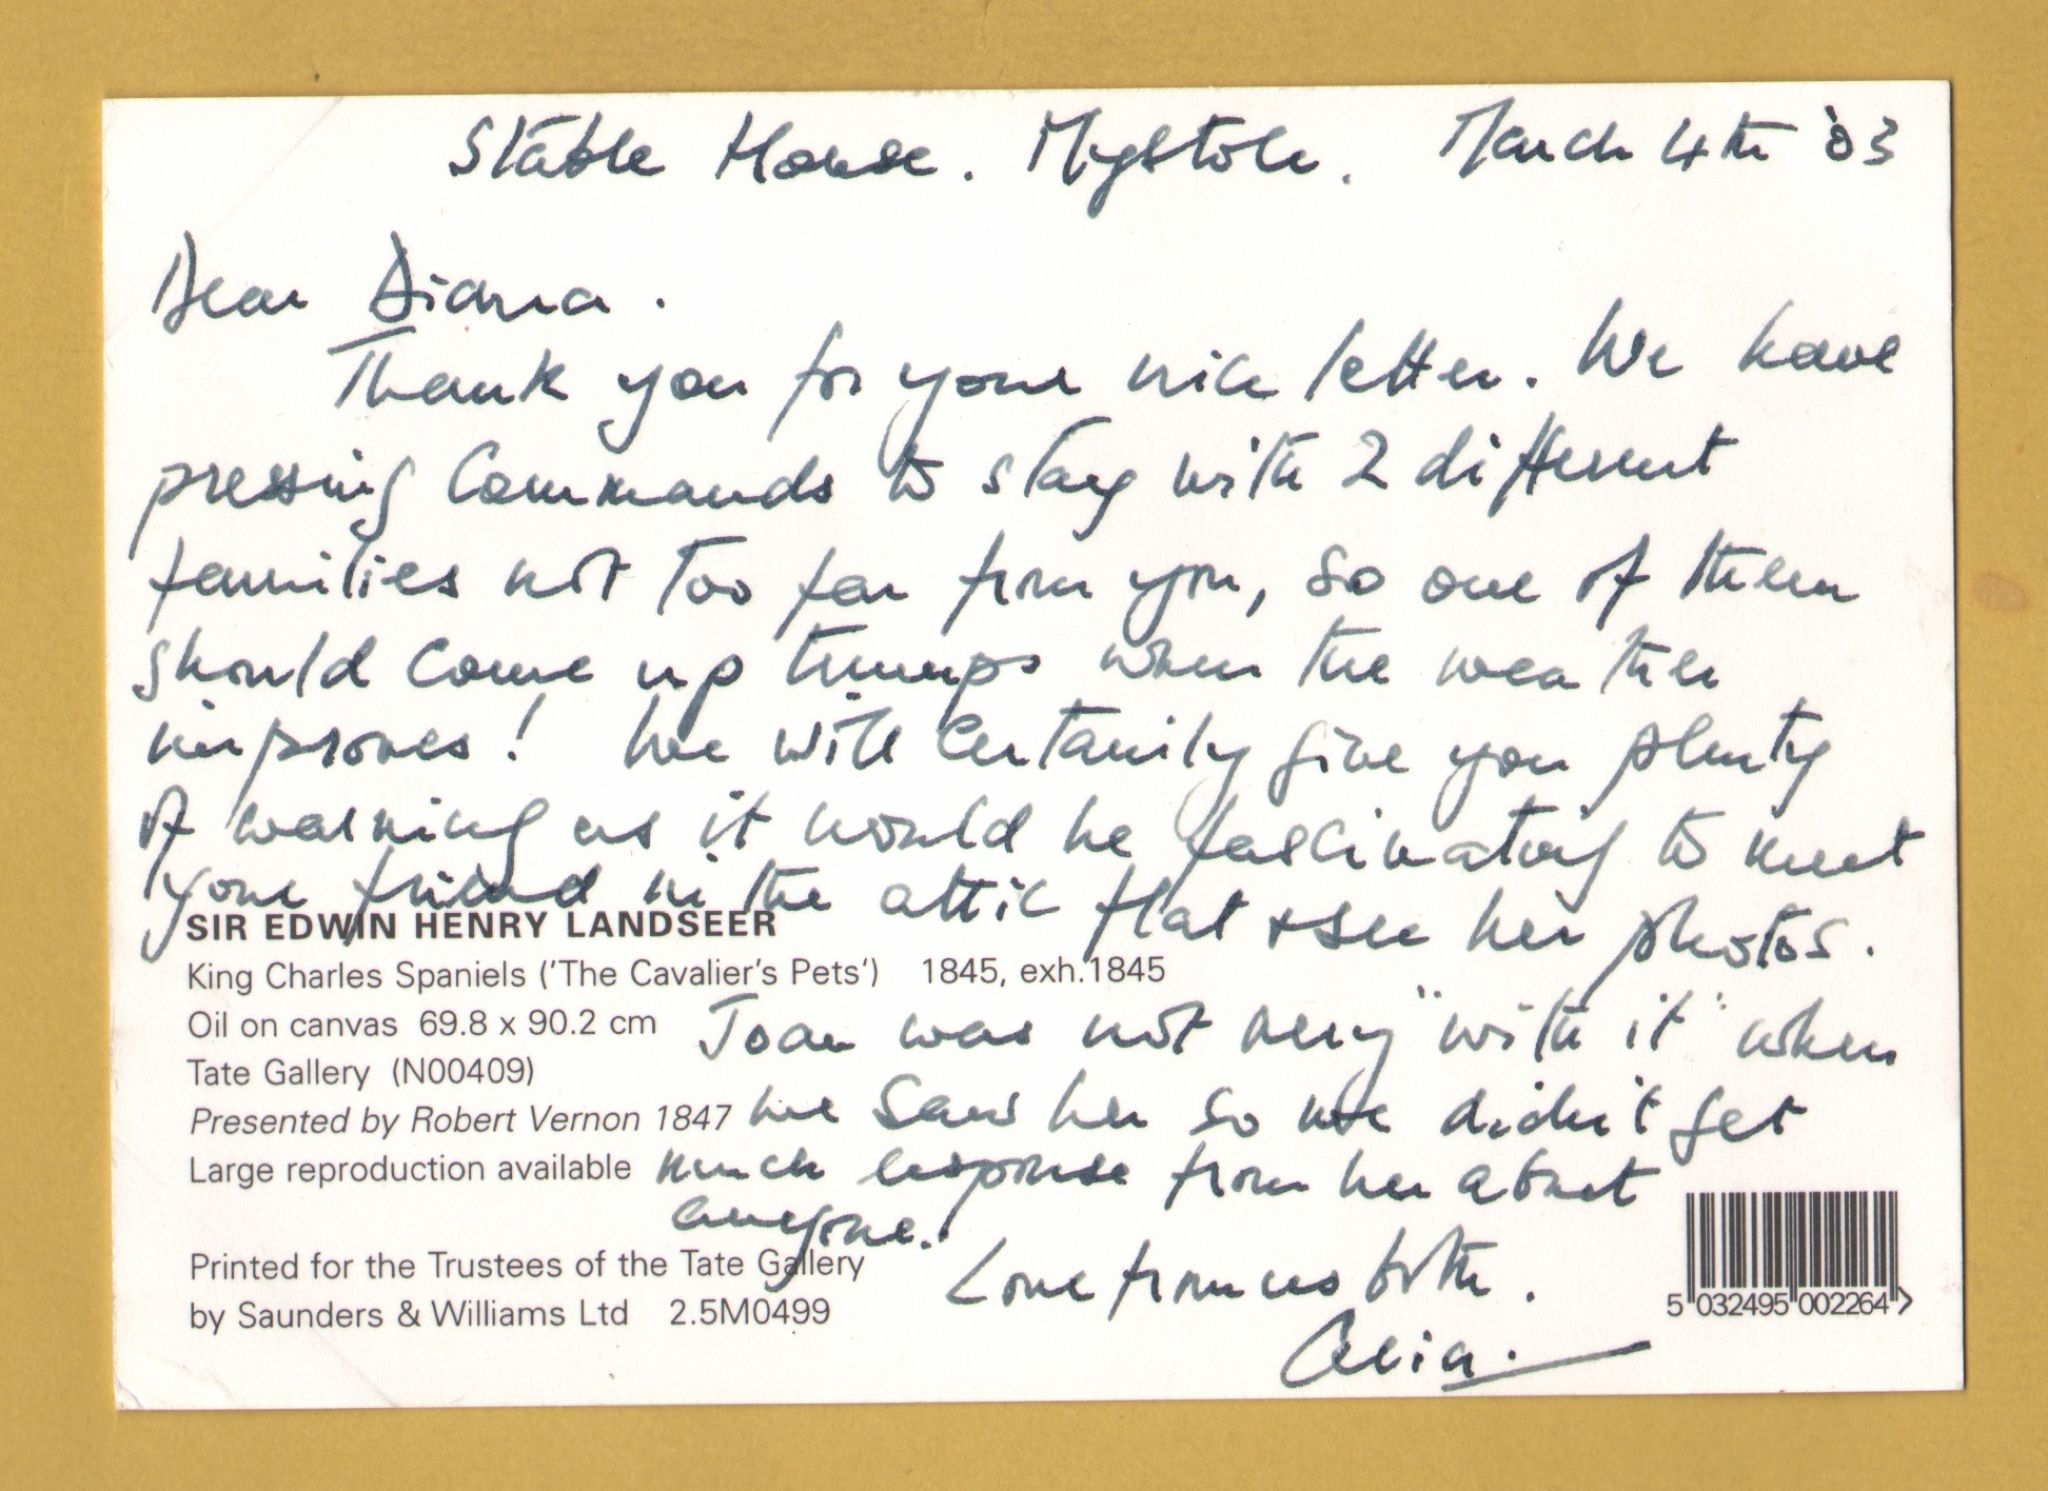 Stable House. Mystole. March 4th '03
Dear Diana.
Thank you for your nice letter. We have
pressing commands to stay with 2 different
families not too far from you, so one of them
should come up trumps when the weather
improves! We will certainly give you plenty
of warning as it would be fascinating to meet
your friend in the attic flat & see her photos.
SIR EDWIN HENRY LANDSEER
King Charles Spaniels ('The Cavalier's Pets') 1845, exh.1845
Oil on canvas 69.8 x 90.2 cm
Tate Gallery (N00409)
Presented by Robert Vernon 1847
Large reproduction available
Joan was not very "with it" when
we saw her so we didn't get
much response from her about
anyone.
Love from us both.
Printed for the Trustees of the Tate Gallery
by Saunders & Williams Ltd 2.5M0499
5 032495 002264 >